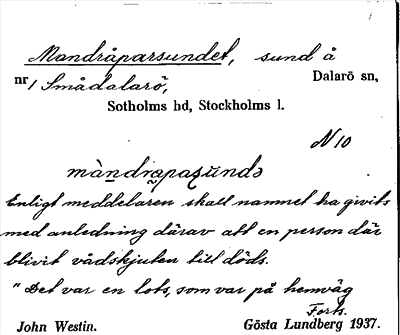 Mandråparsundet, sund å
nr 1 Smådalarö,
Dalarö sn,
Sotholms hd, Stockholms l.
N 10
màndråpaṣundə
Enligt meddelaren skall namnet ha givits
med anledning därav att en person där
blivit vådskjuten till döds.
"Det var en lots, som var på hemväg
Forts.
John Westin.
Gösta Lundberg 1937.